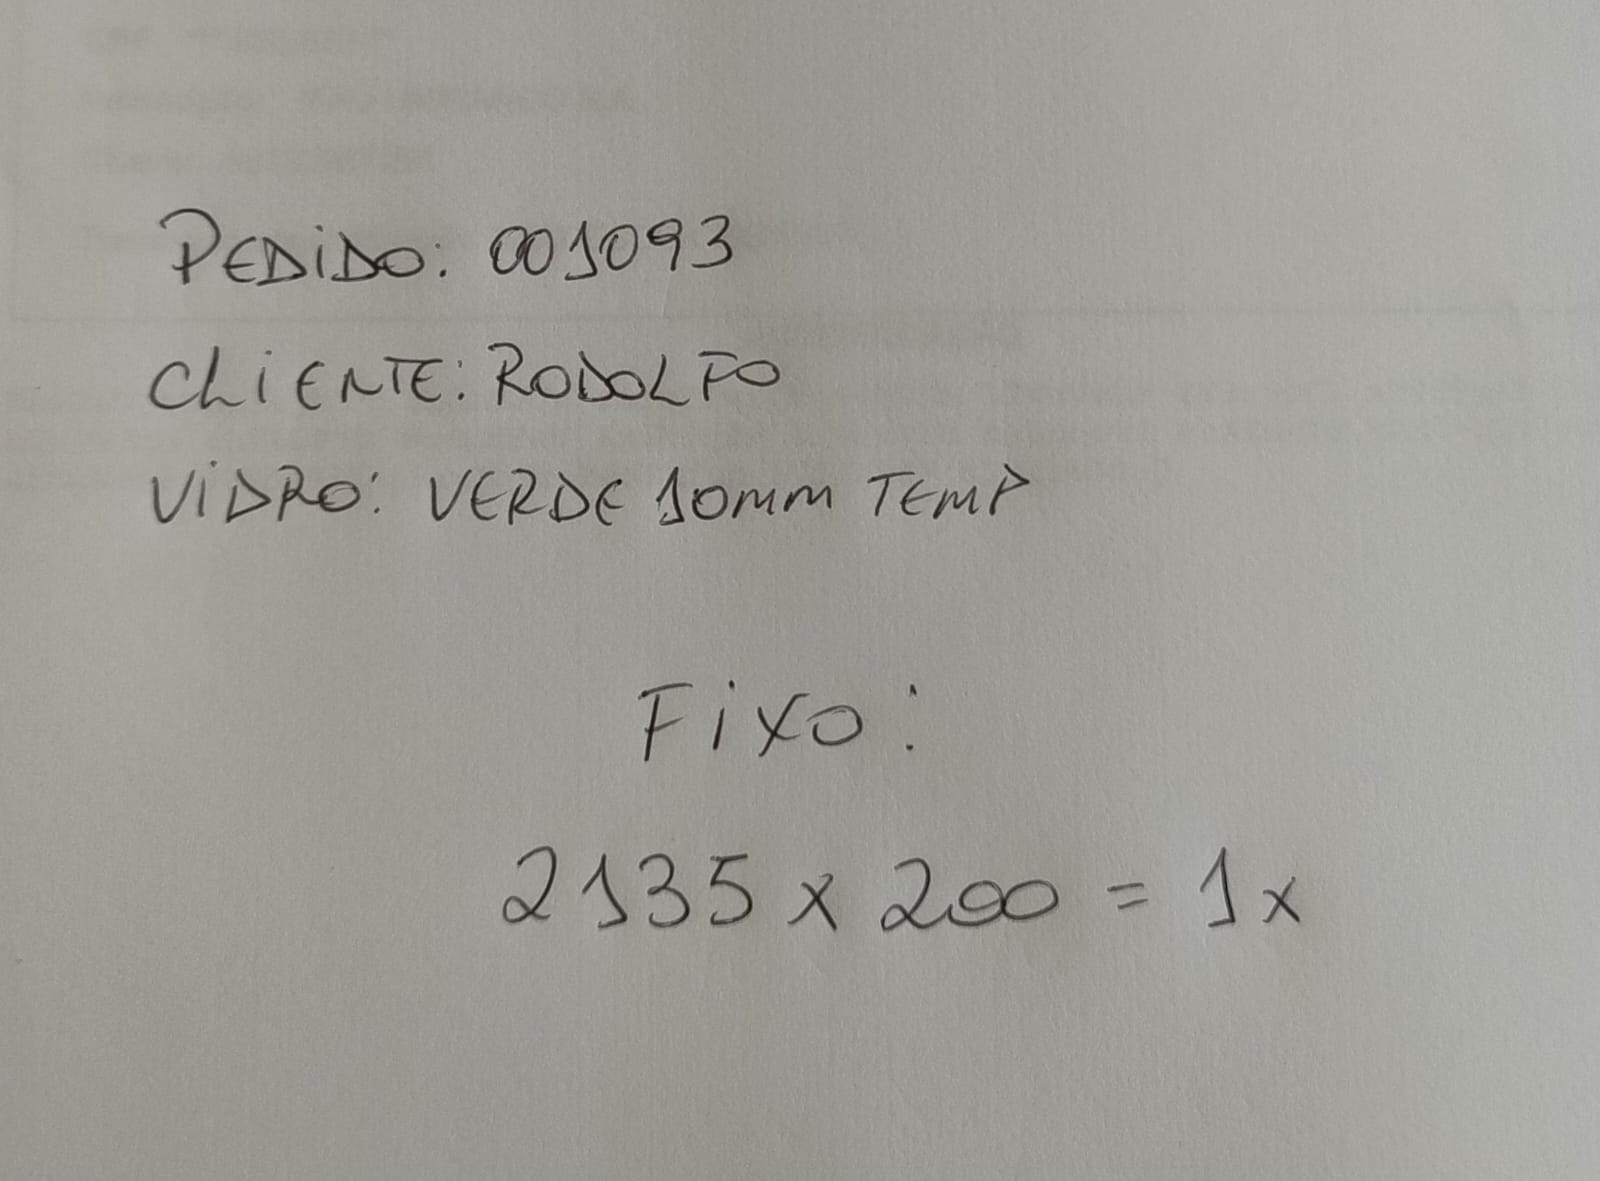 PEDIDO: 001093
CLIENTE: RODOLFO
VIDRO: VERDE 10mm TEMP
FIXO:
2135 x 200 = 1x